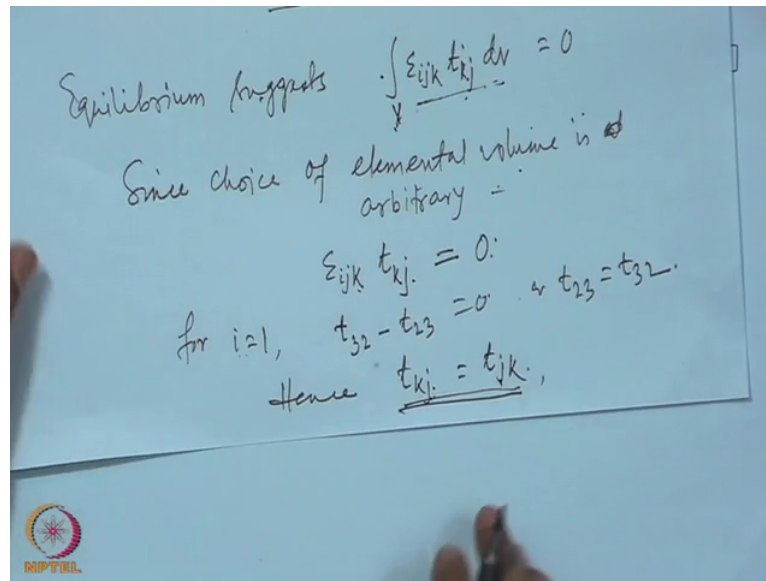 Equilibrium suggests ∫_V ε_ijk t_kj dv = 0
Since choice of elemental volume is
arbitrary -
ε_ijk t_kj = 0.
for i=1, t_32 - t_23 = 0 or t_23 = t_32.
Hence t_kj = t_jk.
NPTEL